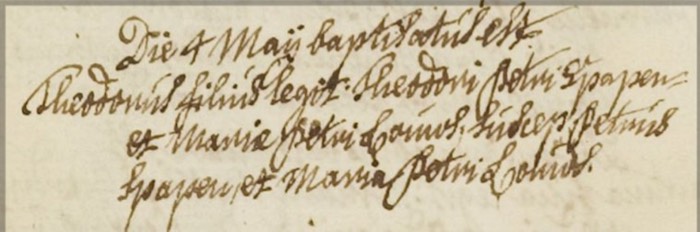 Die 4 Maij baptisatus est
Theodorus filius legit. Theodori Petri Spapen
et Mariæ Petri . Suscep. Petrus
Spapen, et Maria Petri